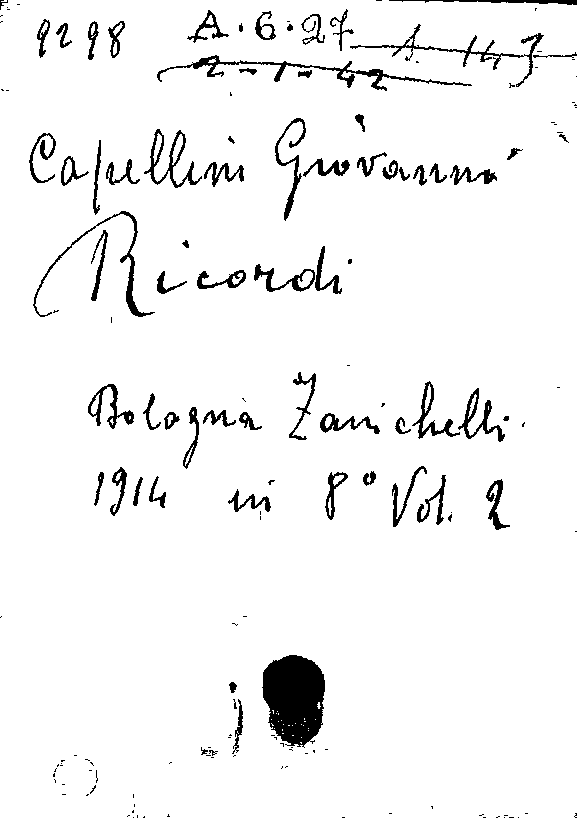 9298 A.6.27 A 143
2-1-42
Capellini Giovanni
Ricordi
Bologna Zanichelli.
1914 in 8° Vol. 2